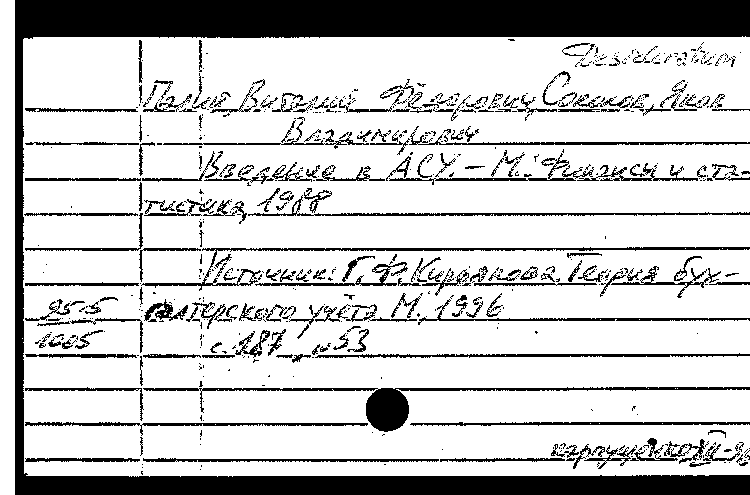 Desideratum
Палий, Виталий Фёдорович, Соколов, Яков
Владимирович
Введение в АСУ. – М.: Финансы и ста-
тистика, 1988
Источник: Г. Ф. Кирьянова. Теория бух-
95-5 галтерского учёта М., 1996
1005 с. 187, н53
XII-96